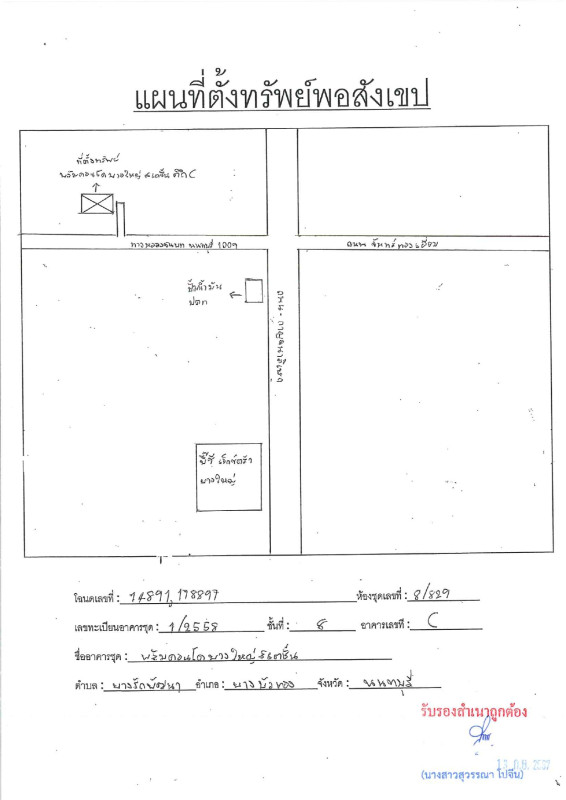 แผนที่ตั้งทรัพย์พอสังเขป
ที่ตั้งทรัพย์
พลัมคอนโด บางใหญ่ สเตชั่น ตึก C
ทางหลวงชนบท นนทบุรี 1009
ถนน จันทร์ทองเอี่ยม
ปั๊มน้ำมัน
ปตท
ถนน - กาญจนาภิเษก
บิ๊กซี เอ็กซ์ตร้า
บางใหญ่
โฉนดเลขที่ : 14891, 178897 ห้องชุดเลขที่ : 8/829
เลขทะเบียนอาคารชุด : 1/2558 ชั้นที่ : 8 อาคารเลขที่ : C
ชื่ออาคารชุด : พลัมคอนโด บางใหญ่ สเตชั่น
ตำบล : บางรักพัฒนา อำเภอ : บางบัวทอง จังหวัด : นนทบุรี
รับรองสำเนาถูกต้อง
(นางสาวสุวรรณา โปจีน)